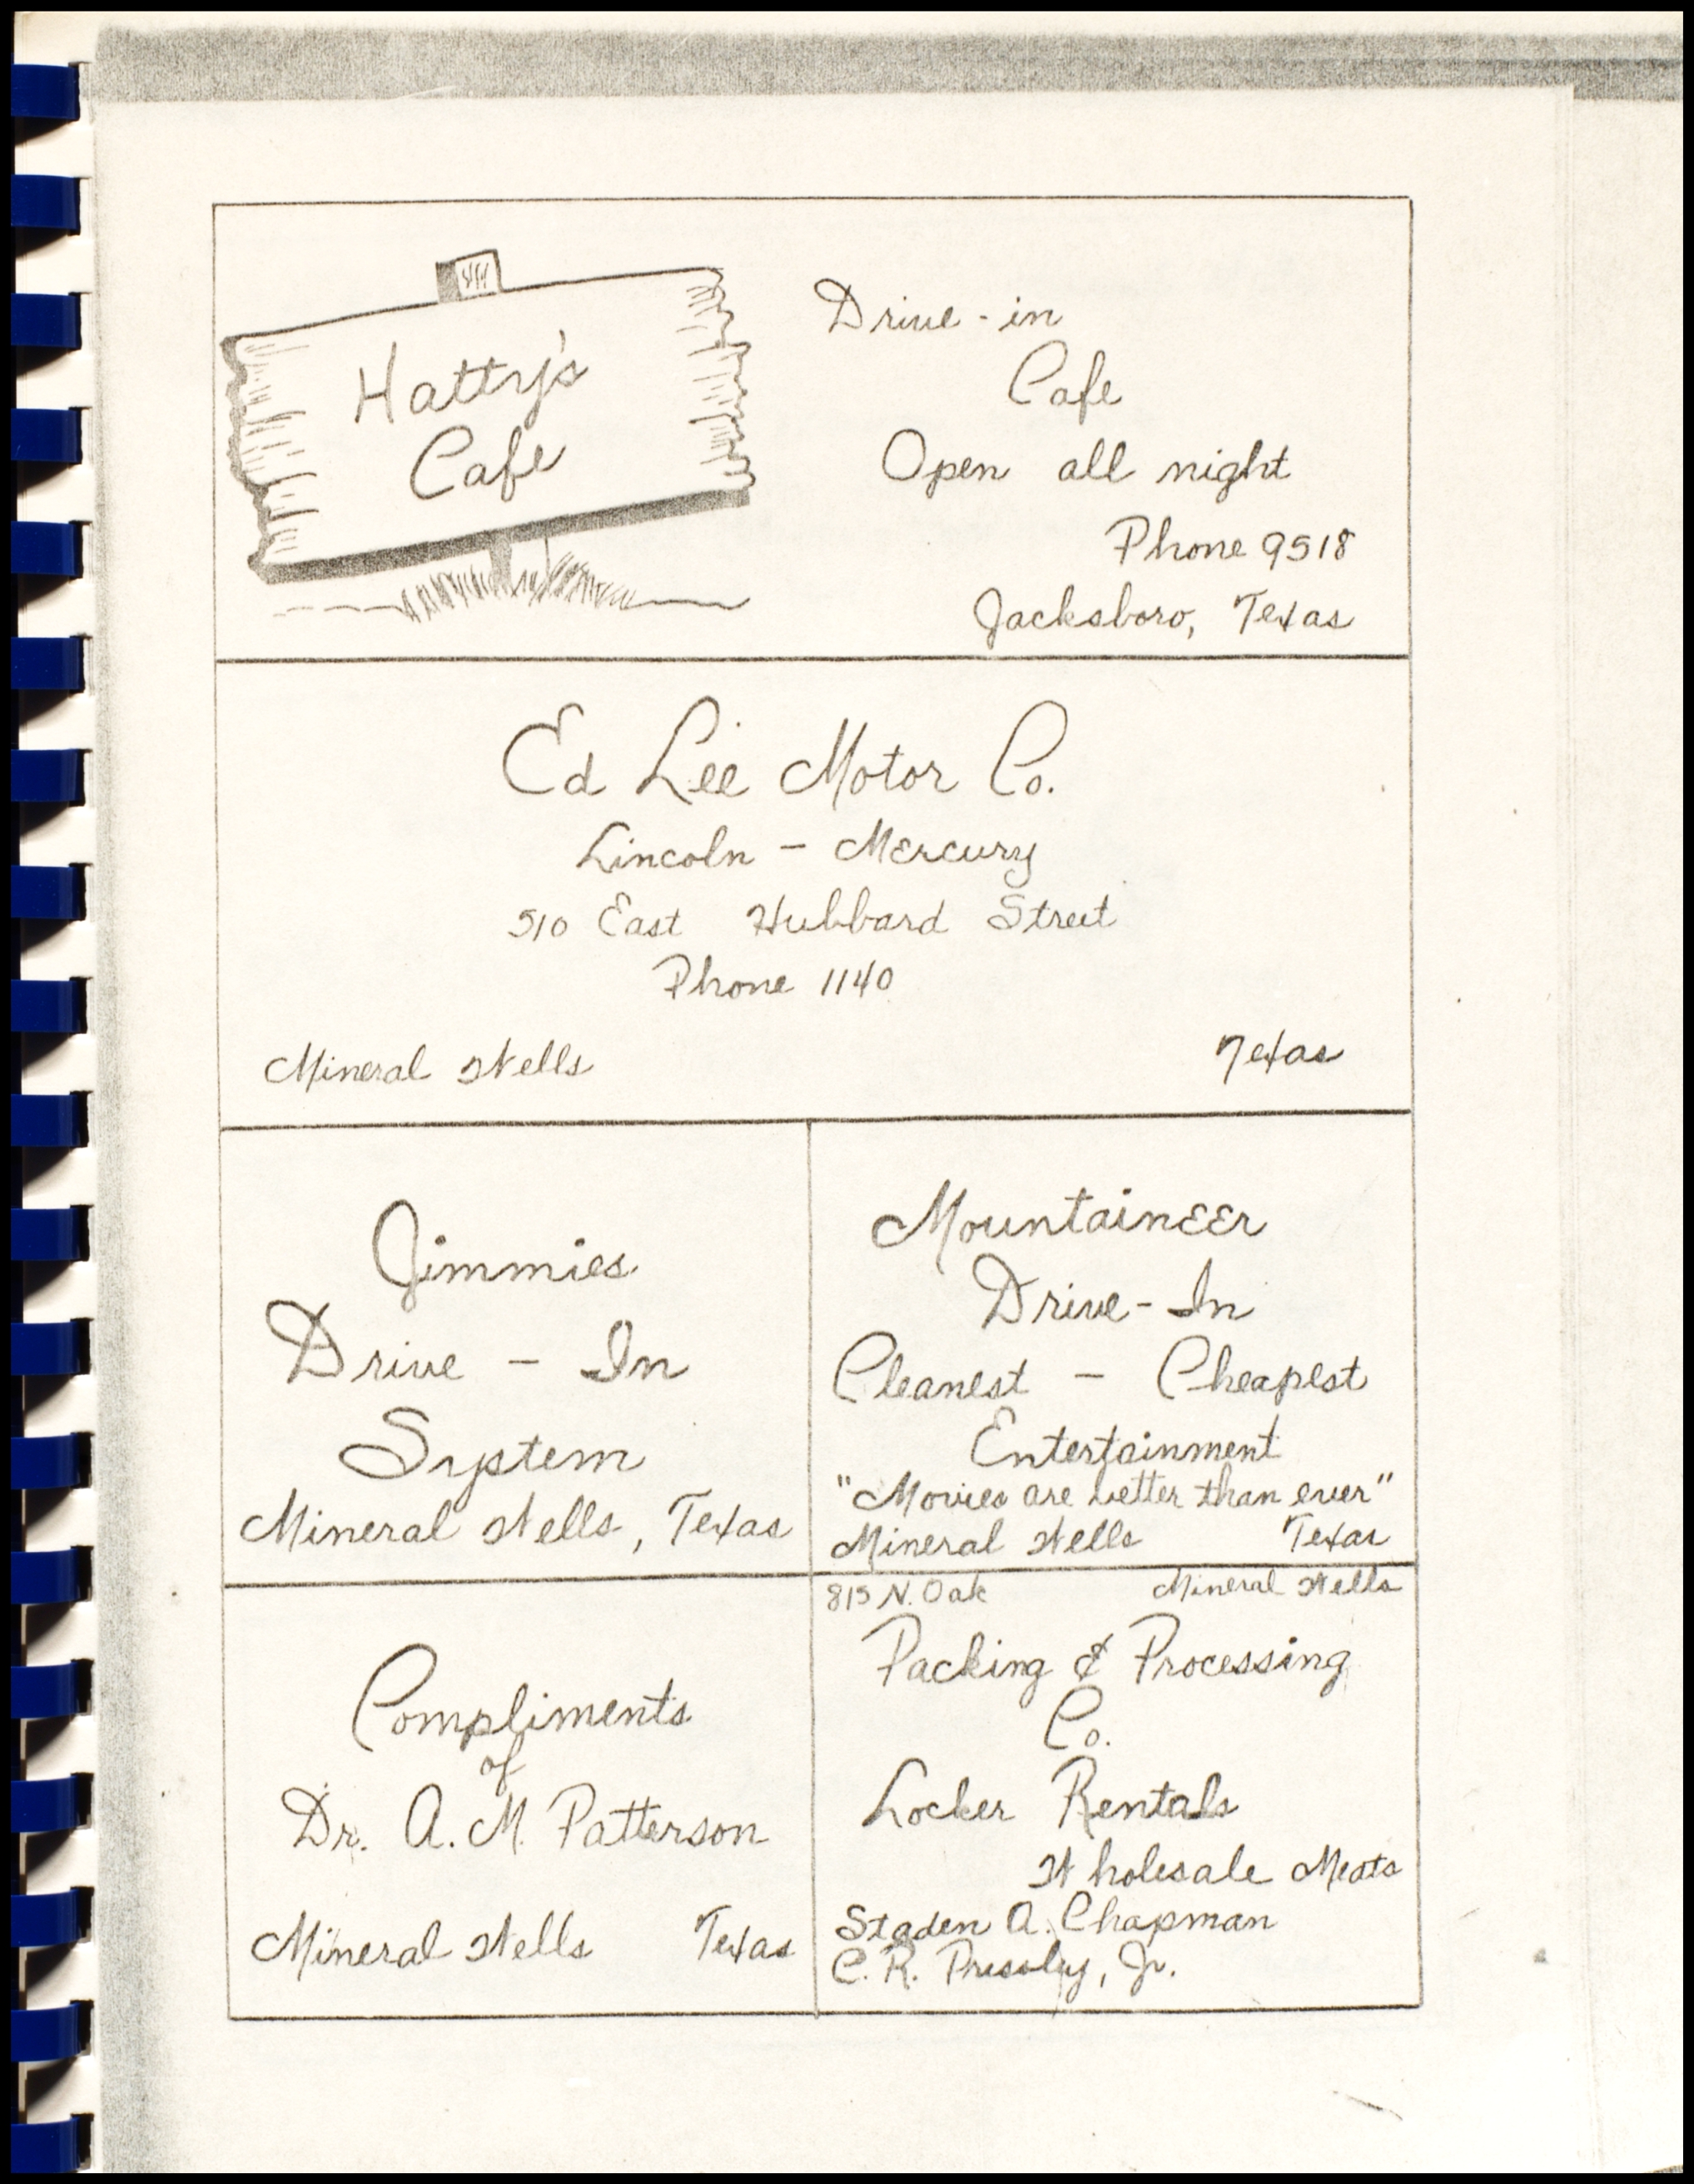 Hatty's
Cafe
Drive-in
Cafe
Open all night
Phone 9518
Jacksboro, Texas
Ed Lee Motor Co.
Lincoln - Mercury
510 East Hubbard Street
Phone 1140
Mineral Wells Texas
Jimmies
Drive - In
System
Mineral Wells, Texas
Mountaineer
Drive-In
Cleanest - Cheapest
Entertainment
"Movies are better than ever"
Mineral Wells Texas
Compliments
of
Dr. A. M. Patterson
Mineral Wells Texas
815 N. Oak Mineral Wells
Packing & Processing
Co.
Locker Rentals
Wholesale Meats
Staden A. Chapman
C. R. Pressley, Jr.